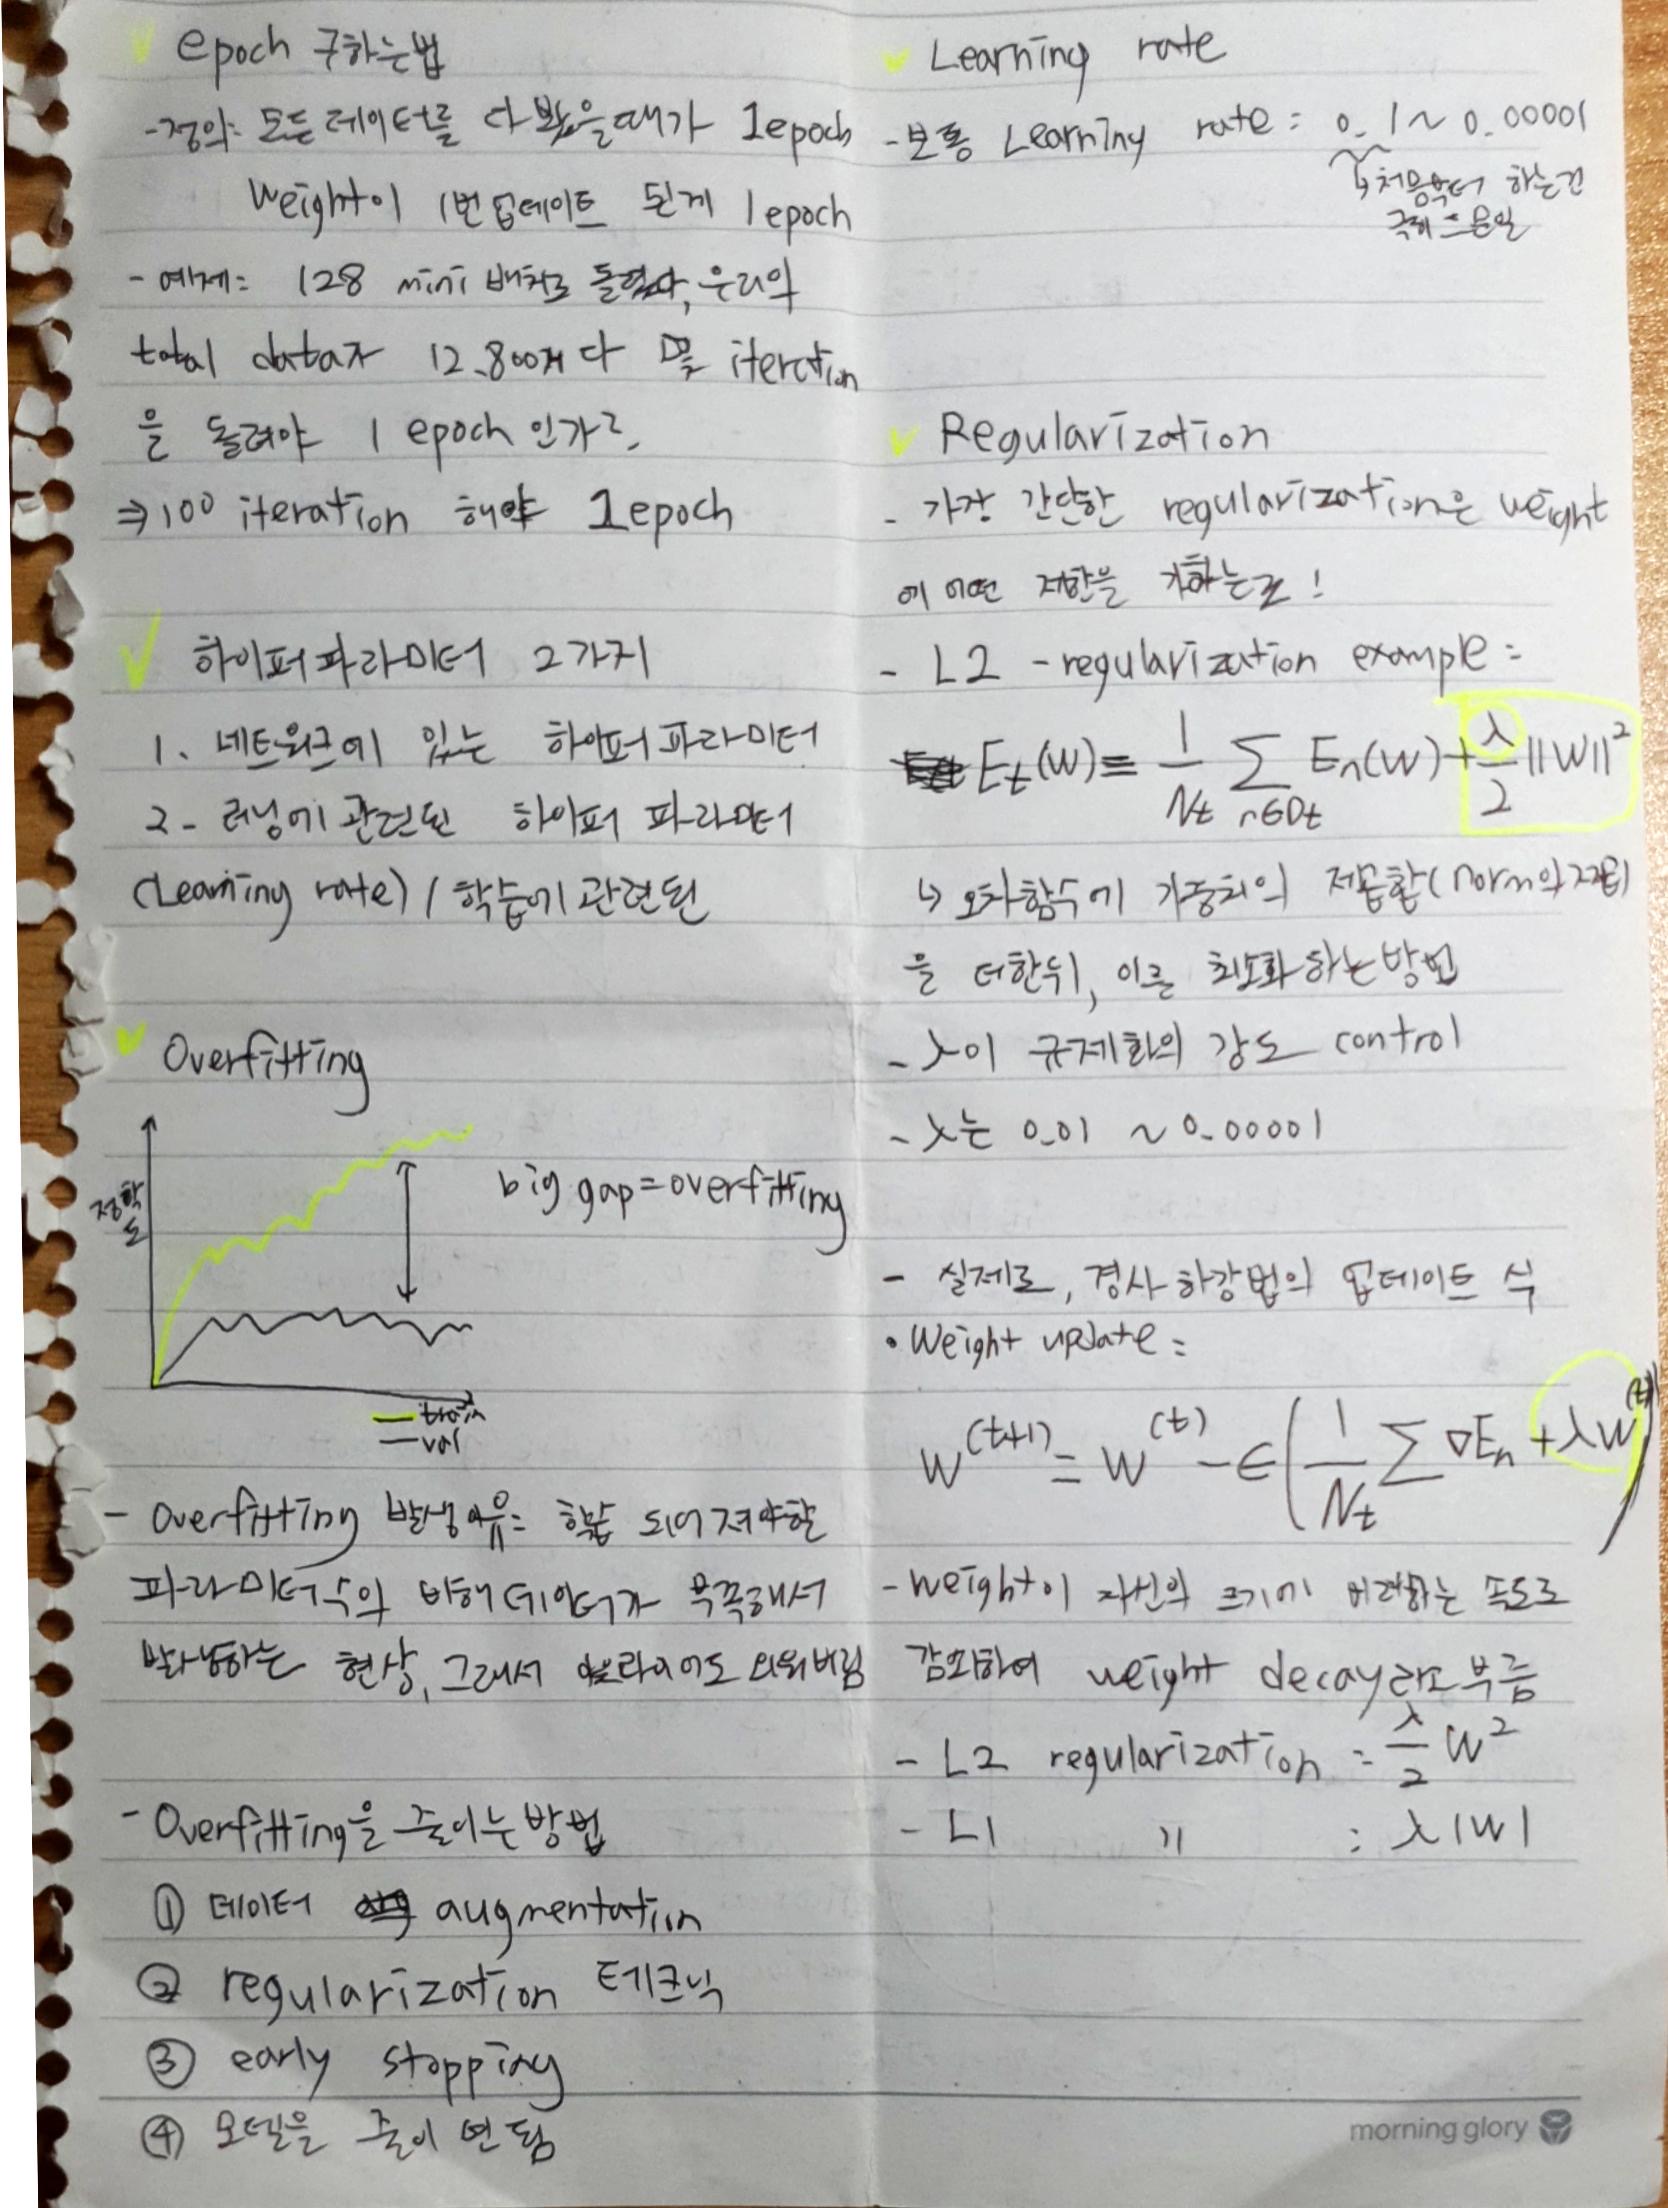 epoch 구하는법
-정의: 모든 데이터를 다 봤을때가 1epoch
weight이 1번 업데이트 된게 1epoch
- 예제: 128 mini 배치로 돌렸다, 우리의
total data가 12.800개다 몇 iteration
을 돌려야 1 epoch 인가?
⇒ 100 iteration 해야 1epoch
하이퍼파라미터 2가지
1. 네트워크에 있는 하이퍼파라미터
2- 러닝에 관련된 하이퍼 파라미터
(Learning rate) / 학습에 관련된
Overfitting
정확도
big gap=overfitting
train
val
- Overfitting 발생이유: 학습 되어져야할
파라미터수의 비해 데이터가 부족해서
발생하는 현상, 그래서 노이즈도 외워버림
- Overfitting을 줄이는 방법
① 데이터 augmentation
② regularization 테크닉
③ early stopping
④ 모델을 줄이면 됨
Learning rate
-보통 Learning rate: 0.1~0.00001
↳처음부터 하는건
극히 드문일
Regularization
- 가장 간단한 regularization은 weight
에 어떤 제한을 가하는것!
- L2 -regularization example:
E_t(W)= 1/N_t Σ_{n∈D_t} E_n(W)+λ/2 ||W||²
↳ 오차함수에 가중치의 제곱합(norm의 제곱)
을 더한뒤, 이를 최소화하는방법
- λ이 규제화의 강도 control
- λ는 0.01 ~ 0.00001
- 실제로, 경사하강법의 업데이트 식
• Weight update:
W^(t+1) = W^(t) - ∈(1/N_t Σ ∇E_n + λW^(t))
- weight이 자신의 크기에 비례하는 속도로
감쇠하여 weight decay라고 부름
- L2 regularization : λ/2 W²
- L1 〃 : λ|W|
morning glory